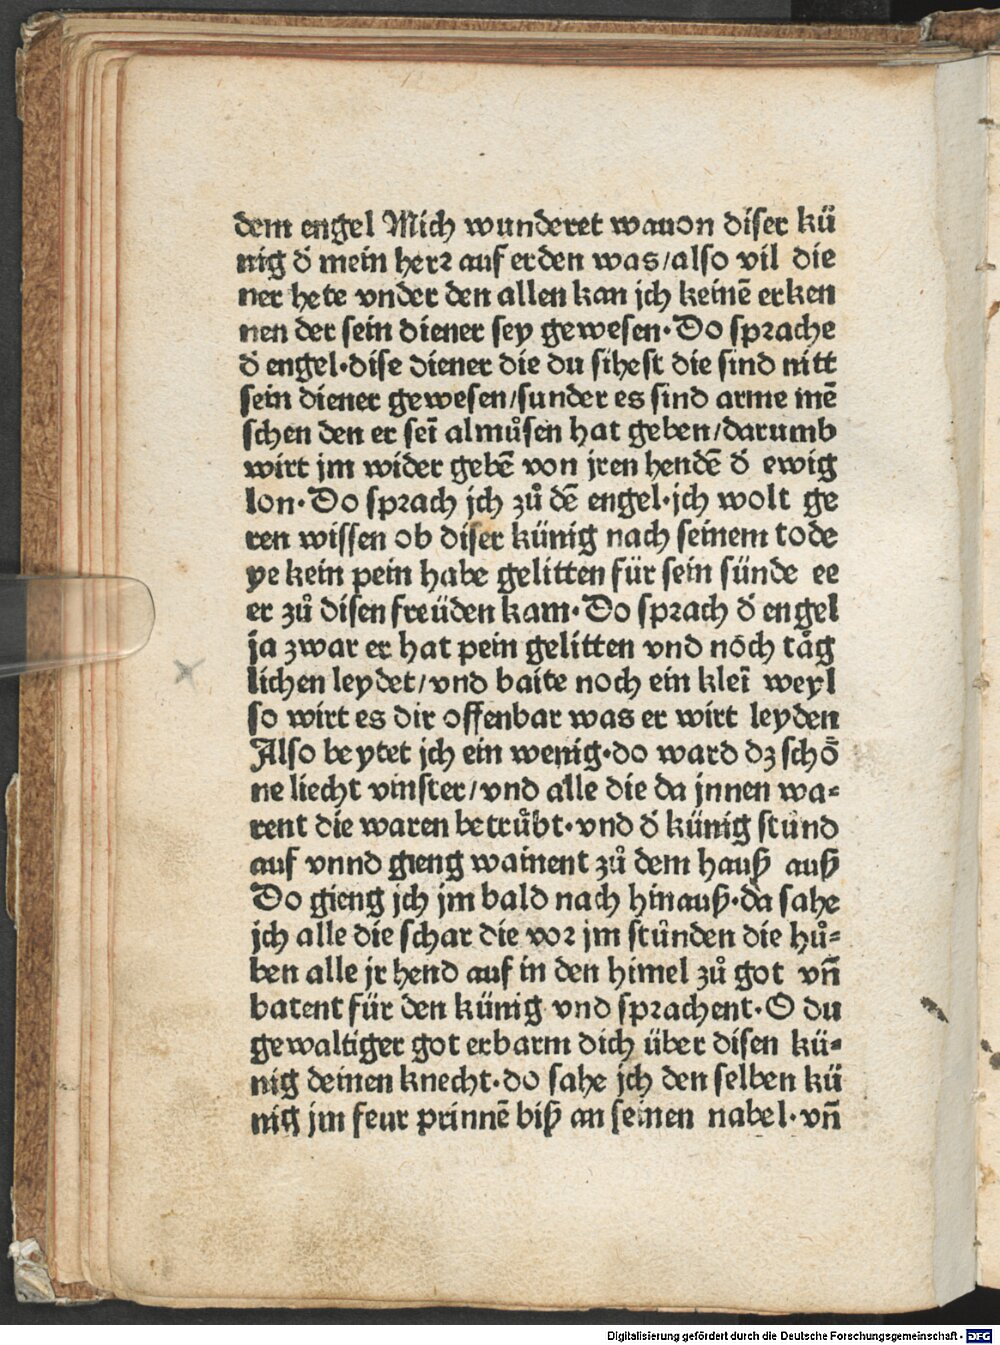 dem engel Mich wunderet wauon diser kü
nig d̄ mein herꝛ auf erden was/also vil die
ner hete vnder den allen kan jch keinē erken
nen der sein diener sey gewesen·Do spꝛache
d̄ engel·dise diener die du sihest die sind nitt
sein diener gewesen/sunder es sind arme mē
schen den er seī almůsen hat geben/darumb
wirt jm wider gebē von jren hendē d̄ ewig
lon·Do spꝛach jch zů dē engel·jch wolt ge
ren wissen ob diser künig nach seinem tode
ye kein pein habe gelitten für sein sünde ee
er zů disen freüden kam·Do spꝛach d̄ engel
ja zwar er hat pein gelitten vnd noch täg
lichen leydet/vnd baite noch ein kleī weyl
so wirt es dir offenbar was er wirt leyden
Also beytet jch ein wenig·do ward dz schö
ne liecht vinster/vnd alle die da jnnen wa-
rent die waren betrůbt·vnd d̄ künig stůnd
auf vnnd gieng wainent zů dem hauß auß
Do gieng jch jm bald nach hinauß·da sahe
jch alle die schar die voꝛ jm stůnden die hů-
ben alle jr hend auf in den himel zů got vn̄
batent für den künig vnd spꝛachent·O du
gewaltiger got erbarm dich über disen kü-
nig deinen knecht·do sahe jch den selben kü
nig jm feur prinnē biß an seinen nabel·vn̄
Digitalisierung gefördert durch die Deutsche Forschungsgemeinschaft - DFG